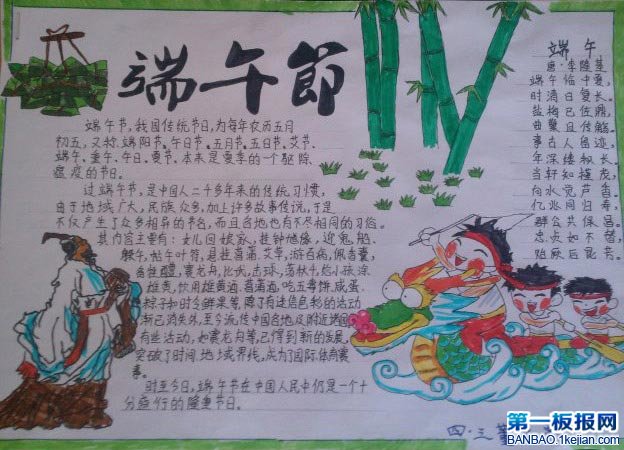 端午節
端午节,我国传统节日,为每年农历五月
初五,又称端阳节、午日节、五月节、五日节、艾节、
端午、重午、午日、夏节。本来是夏季的一个驱除
瘟疫的节日。
过端午节,是中国人二千多年来的传统习惯,
由于地域广大,民族众多,加上许多故事传说,于是
不仅产生了众多相异的节名,而且各地也有不尽相同的习俗。
其内容主要有:女儿回娘家,挂钟馗像,迎鬼船、
躲午,帖午叶符,悬挂菖蒲、艾草,游百病,佩香囊,
备牲醴,赛龙舟,比武,击球,荡秋千,给小孩涂
雄黄,饮用雄黄酒、菖蒲酒,吃五毒饼、咸蛋、
粽子和时令鲜果等,除了有迷信色彩的活动
渐已消失外,至今流传中国各地及附近诸国。
有些活动,如赛龙舟等,已得到新的发展,
突破了时间、地域界线,成为了国际体育赛
事。
时至今日,端午节在中国人民中仍是一个十
分盛行的隆重节日。
端午
唐·李隆基
端午临中夏,
时清日复长。
盐梅已佐鼎,
曲糵且传觞。
事古人留迹,
年深缕积长。
当轩知槿茂,
向水觉芦香。
亿兆同归寿,
群公共保昌。
忠贞如不替,
贻厥后昆芳。
四·三
第一板报网
BANBAO.1kejian.com